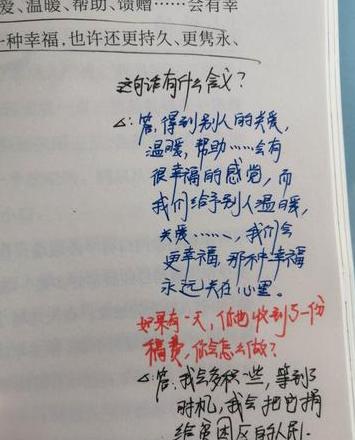 爱、温暖、帮助、馈赠……会有幸
一种幸福,也许还更持久、更隽永、
这句话有什么含义?
△:答,得到别人的关爱,
温暖,帮助……会有
很幸福的感觉,而
我们给予别人温暖,
关爱……,我们会
更幸福,那种幸福
永远夹在心里。
如果有一天,你也收到了一份
稿费,你会怎么做?
△答:我会多积一些,等到了
时机,我会把它捐
给贫困区的人民.